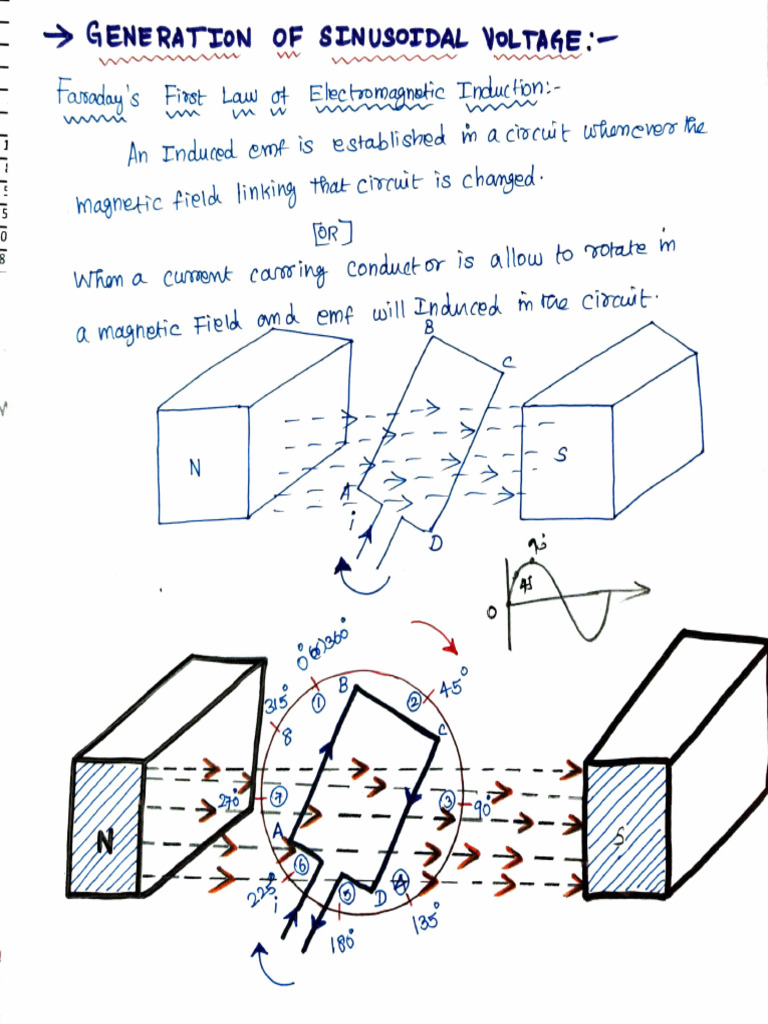 → GENERATION OF SINUSOIDAL VOLTAGE:-
Faraday's First Law of Electromagnetic Induction:-
An Induced emf is established in a circuit whenever the
magnetic field linking that circuit is changed.
[OR]
When a current carring conductor is allow to rotate in
a magnetic Field and emf will Induced in the circuit.
B
C
N
S
A
i
D
90°
45
0
0°(or)360°
B
45°
315°
1
2
8
C
270°
7
3
90°
A
N
S
6
225°
i
5
D
4
180°
135°
1
5
0
8